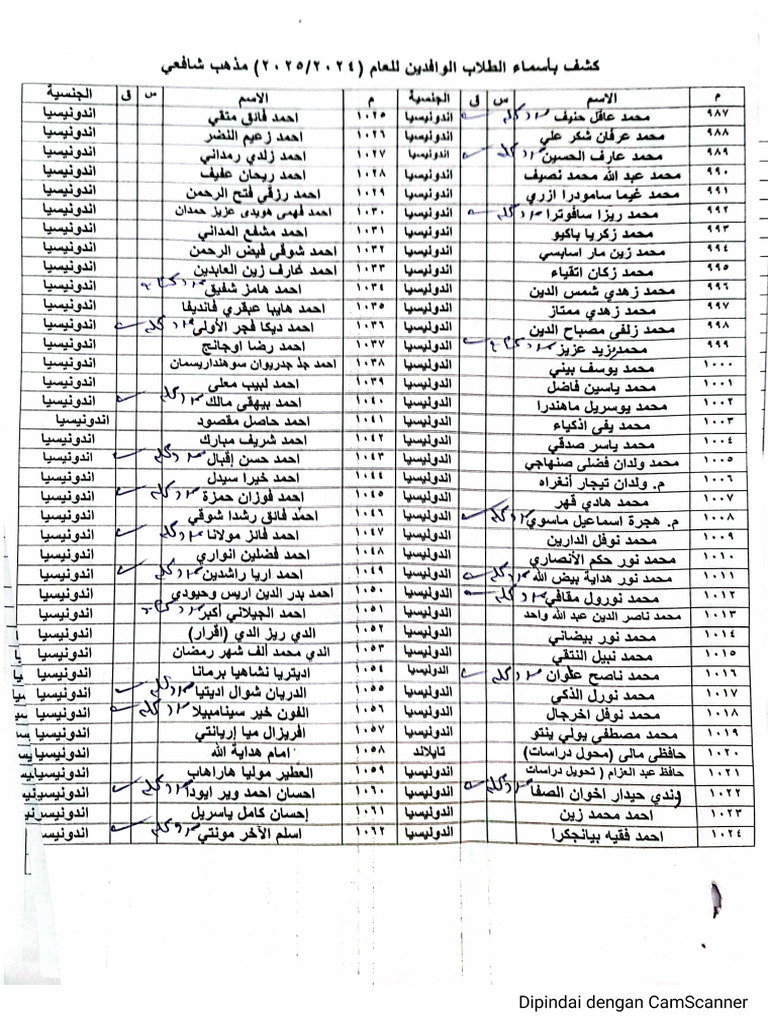 كشف بأسماء الطلاب الوافدين للعام (٢٠٢٥/٢٠٢٤) مذهب شافعي
م الاسم س ق الجنسية م الاسم س ق الجنسية
٩٨٧ محمد عاقل حنيف اندونيسيا ١٠٢٥ احمد فائق متقي اندونيسيا
٩٨٨ محمد عرفان شكر علي اندونيسيا ١٠٢٦ احمد زعيم النضر اندونيسيا
٩٨٩ محمد عارف الحسين اندونيسيا ١٠٢٧ احمد زلدي رمداني اندونيسيا
٩٩٠ محمد عبد الله محمد نصيف اندونيسيا ١٠٢٨ احمد ريحان عفيف اندونيسيا
٩٩١ محمد غيما سامودرا ازري اندونيسيا ١٠٢٩ احمد رزقي فتح الرحمن اندونيسيا
٩٩٢ محمد ريزا سافوترا اندونيسيا ١٠٣٠ احمد فهمى هويدى عزيز حمدان اندونيسيا
٩٩٣ محمد زكريا باكيو اندونيسيا ١٠٣١ احمد مشفع المداني اندونيسيا
٩٩٤ محمد زين مار اسابسي اندونيسيا ١٠٣٢ احمد شوقي فيض الرحمن اندونيسيا
٩٩٥ محمد زكان اتقياء اندونيسيا ١٠٣٣ احمد عارف زين العابدين اندونيسيا
٩٩٦ محمد زهدي شمس الدين اندونيسيا ١٠٣٤ احمد هامز شفيق اندونيسيا
٩٩٧ محمد زهدي ممتاز اندونيسيا ١٠٣٥ احمد هايبا عبقري فانديفا اندونيسيا
٩٩٨ محمد زلفى مصباح الدين اندونيسيا ١٠٣٦ احمد ديكا فجر الأولى اندونيسيا
٩٩٩ محمد يزيد عزيز اندونيسيا ١٠٣٧ احمد رضا اوجانج اندونيسيا
١٠٠٠ محمد يوسف بيني اندونيسيا ١٠٣٨ احمد جدريوان سوهنداريسمان اندونيسيا
١٠٠١ محمد ياسين فاضل اندونيسيا ١٠٣٩ احمد لبيب معلى اندونيسيا
١٠٠٢ محمد يوسريل ماهندرا اندونيسيا ١٠٤٠ احمد بيهقى مالك اندونيسيا
١٠٠٣ محمد يفى اذكياء اندونيسيا ١٠٤١ احمد حاصل مقصود اندونيسيا
١٠٠٤ محمد ياسر صدقي اندونيسيا ١٠٤٢ احمد شريف مبارك اندونيسيا
١٠٠٥ محمد ولدان فضلى صنهاجي اندونيسيا ١٠٤٣ احمد حسن إقبال اندونيسيا
١٠٠٦ م. ولدان تيجار أنغراه اندونيسيا ١٠٤٤ احمد خيرا سيدل اندونيسيا
١٠٠٧ محمد هادي قهر اندونيسيا ١٠٤٥ احمد فوزان حمزة اندونيسيا
١٠٠٨ م. هجرة اسماعيل ماسوي اندونيسيا ١٠٤٦ احمد فائق رشدا شوقي اندونيسيا
١٠٠٩ محمد نوفل الدارين اندونيسيا ١٠٤٧ احمد فائز مولانا اندونيسيا
١٠١٠ محمد نور حكم الأنصاري اندونيسيا ١٠٤٨ احمد فضلين انواري اندونيسيا
١٠١١ محمد نور هداية بيض الله اندونيسيا ١٠٤٩ احمد اريا راشدين اندونيسيا
١٠١٢ محمد نورول مقافي اندونيسيا ١٠٥٠ احمد بدر الدين اريس وحيودي اندونيسيا
١٠١٣ محمد ناصر الدين عبد الله واحد اندونيسيا ١٠٥١ احمد الجيلاني أكبر اندونيسيا
١٠١٤ محمد نور بيضاني اندونيسيا ١٠٥٢ الدي ريز الدي (اقرار) اندونيسيا
١٠١٥ محمد نبيل النتقي اندونيسيا ١٠٥٣ الدي محمد ألف شهر رمضان اندونيسيا
١٠١٦ محمد ناصح علوان اندونيسيا ١٠٥٤ اديتريا نشاهيا برمانا اندونيسيا
١٠١٧ محمد نورل الذكي اندونيسيا ١٠٥٥ الدريان شوال اديتيا اندونيسيا
١٠١٨ محمد نوفل اخرجال اندونيسيا ١٠٥٦ الفون خير سينامبيلا اندونيسيا
١٠١٩ محمد مصطفى يولي ينتو اندونيسيا ١٠٥٧ افريزال ميا إريانتي اندونيسيا
١٠٢٠ حافظى مالى (محول دراسات) تايلاند ١٠٥٨ امام هداية الله اندونيسيا
١٠٢١ حافظ عبد العزام ( تحويل دراسات اندونيسيا ١٠٥٩ العطير موليا هاراهاب اندونيسيا
١٠٢٢ وندي حيدار اخوان الصفا اندونيسيا ١٠٦٠ احسان احمد وير ايودا اندونيسيا
١٠٢٣ احمد محمد زين اندونيسيا ١٠٦١ إحسان كامل ياسريل اندونيسيا
١٠٢٤ احمد فقيه بيانجكرا اندونيسيا ١٠٦٢ اسلم الآخر مونتي اندونيسيا
Dipindai dengan CamScanner